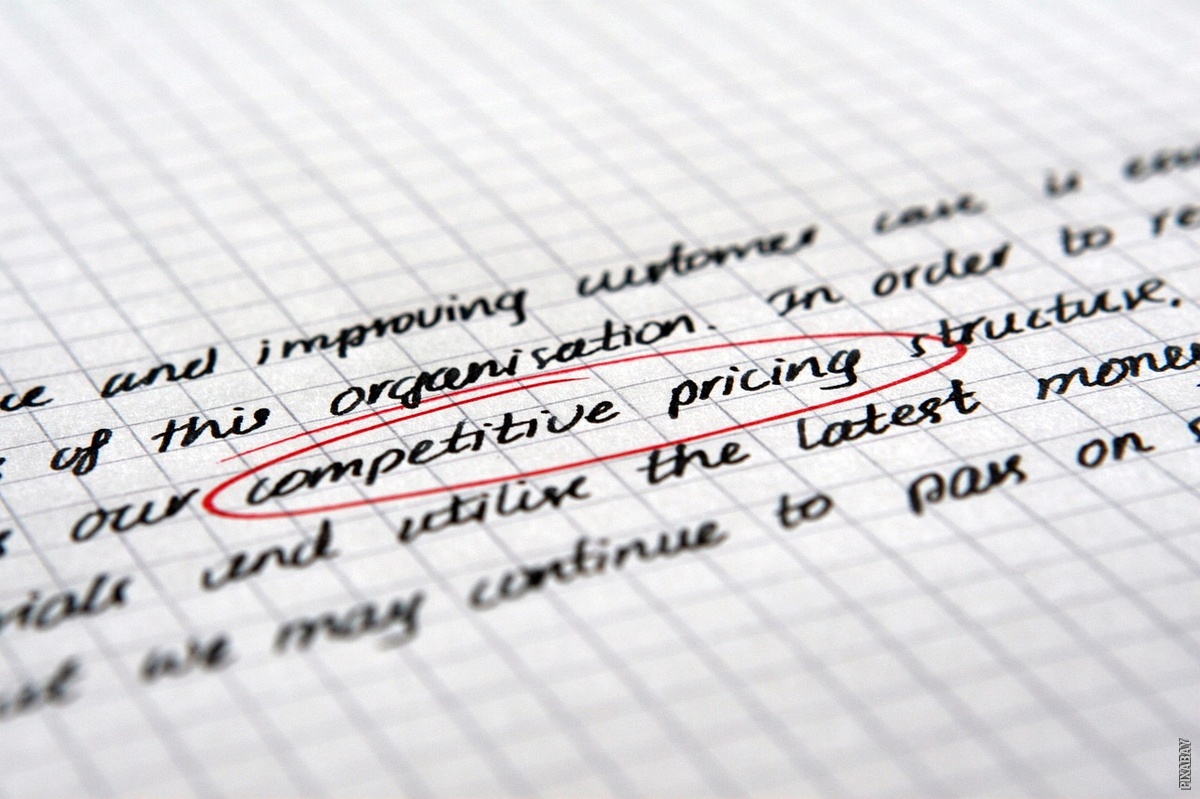 and improving customer care is
of this organisation. In order to re
our competitive pricing structure.
and utilise the latest mone
we may continue to pass on s
PIXABAY